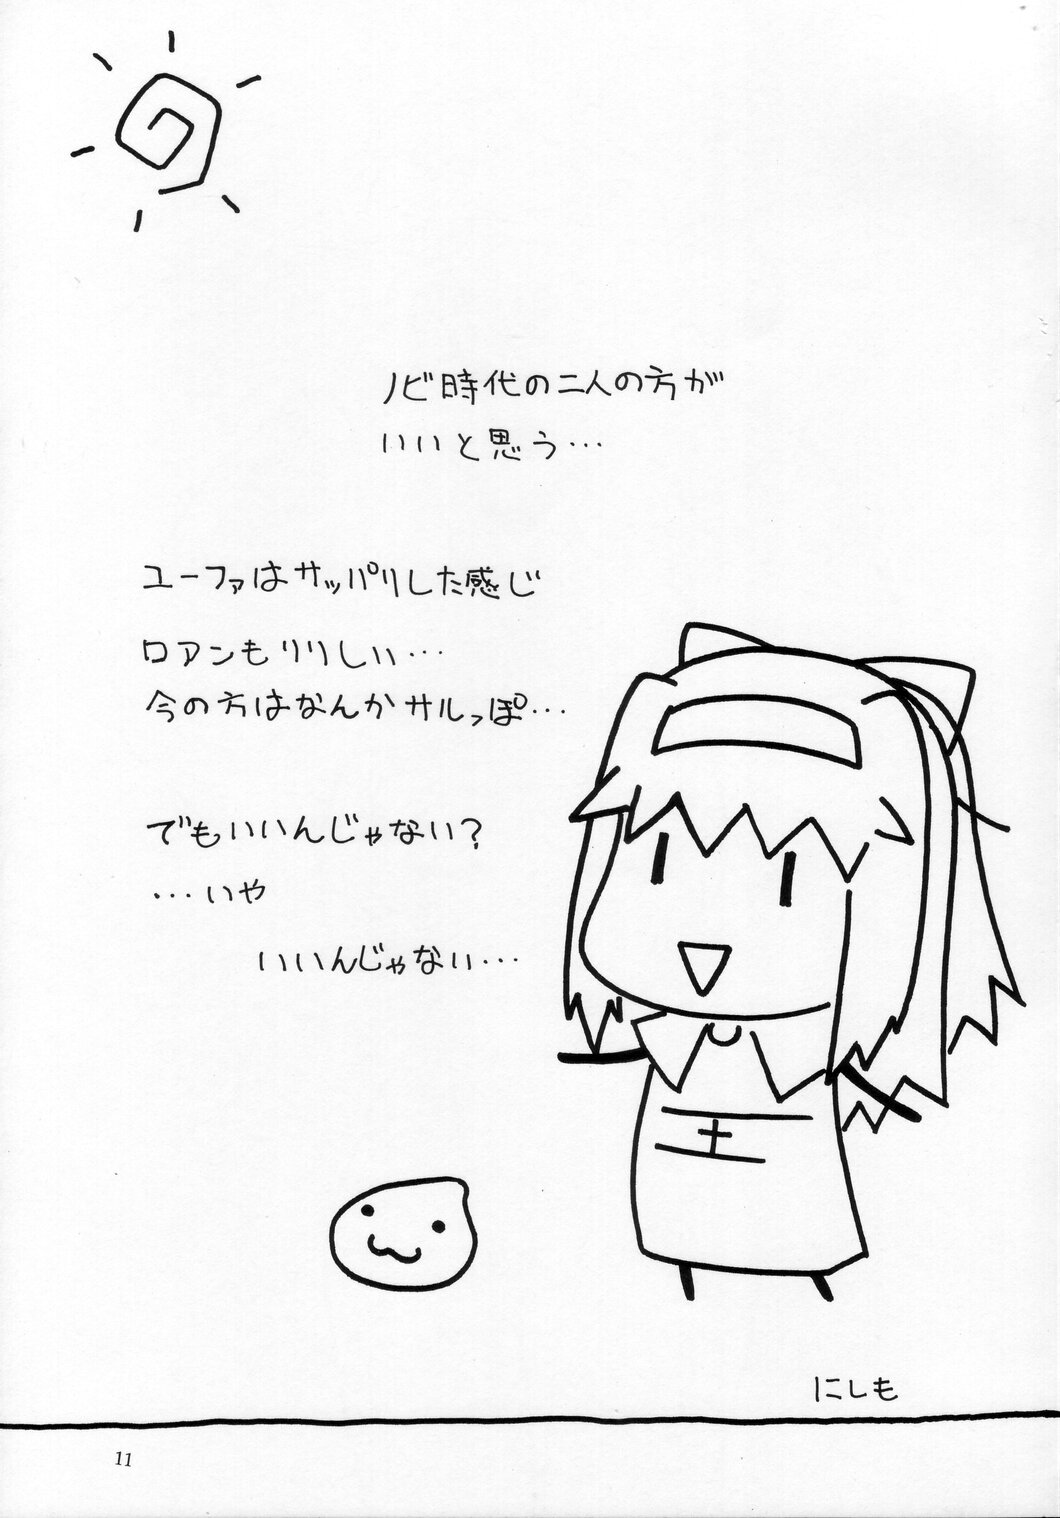 ノビ時代の二人の方が
いいと思う…
ユーファはサッパリした感じ
ロアンもりりしい…
今の方はなんかサルっぽ…
でもいいんじゃない？
…いや
いいんじゃない…
にしも
11